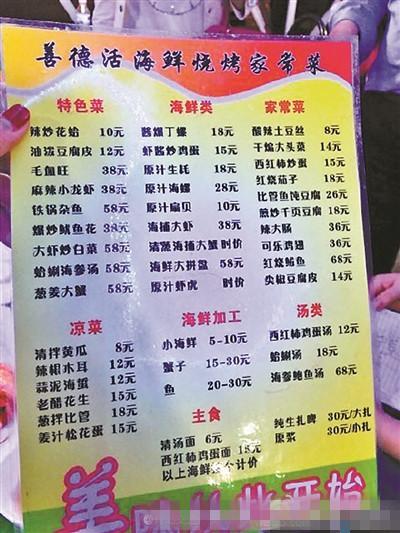 善德活海鲜烧烤家常菜
特色菜
辣炒花蛤 10元
油泼豆腐皮 12元
毛血旺 38元
麻辣小龙虾 38元
铁锅杂鱼 58元
爆炒鱿鱼花 38元
大虾炒白菜 58元
蛤蜊海参汤 58元
葱姜大蟹 58元
海鲜类
酱爆丁螺 18元
虾酱炒鸡蛋 15元
原汁生蚝 18元
原汁海螺 28元
原汁扇贝 10元
海捕大虾 38元
清蒸海捕大蟹 时价
海鲜大拼盘 58元
原汁虾虎 时价
家常菜
酸辣土豆丝 8元
干煸大头菜 14元
西红柿炒蛋 15元
红烧茄子 18元
比管鱼炖豆腐 26元
煎炒千页豆腐 18元
辣大肠 36元
可乐鸡翅 36元
红烧鲐鱼 68元
尖椒豆腐皮 14元
凉菜
清拌黄瓜 8元
辣椒木耳 12元
蒜泥海蜇 12元
老醋花生 15元
葱拌比管 18元
姜汁松花蛋 15元
海鲜加工
小海鲜 5-10元
蟹子 15-30元
鱼 20-30元
汤类
西红柿鸡蛋汤 12元
蛤蜊汤 18元
海参鲍鱼汤 68元
主食
清汤面 6元
西红柿鸡蛋面 15元
以上海鲜 个计价
纯生扎啤 30元/大扎
原浆 30元/小扎
美味从此开始